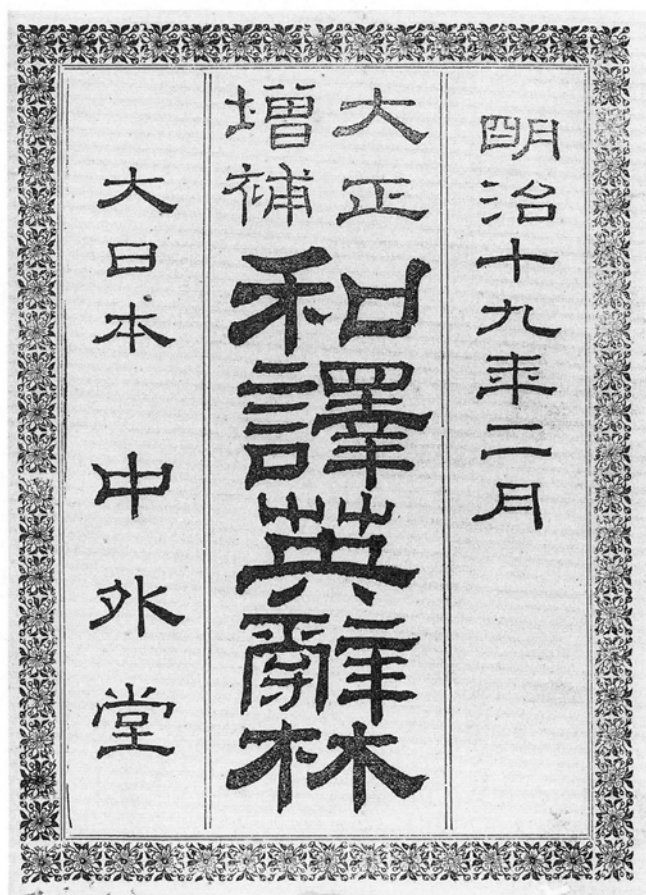 明治十九年二月
大正
増補
和譯英辭林
大日本 中外堂